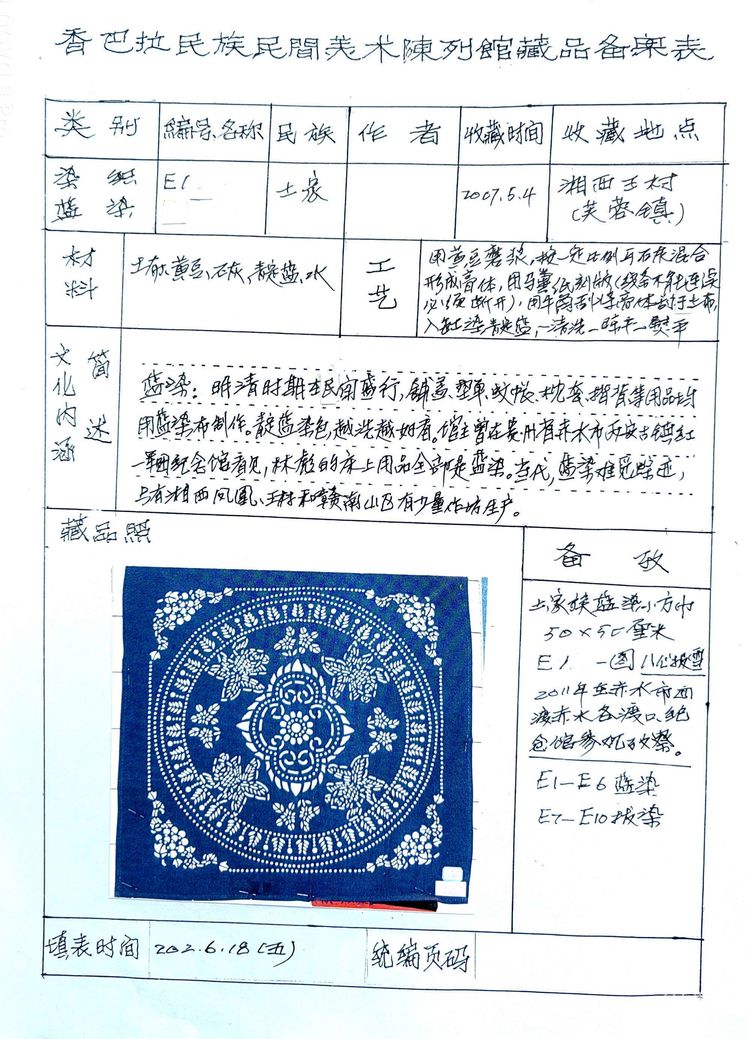 香巴拉民族民間美术陳列館藏品备案表
类别 編号名称 民族 作者 收藏时间 收藏地点
染织 E1 土家 2007.5.4 湘西王村
蓝染 (芙蓉镇)
材料 土布、黄豆、石灰、靛蓝、水
工艺 用黄豆磨浆,按一定比例与石灰混合
形成膏体,用马粪纸刻版(线条不能连误
必须断开),用牛角刮将膏体刮于土布,
入缸染靛蓝,一清洗一晾干一熨平
文化内涵 简述
蓝染:明清时期在民间盛行,铺盖、垫单、蚊帐、枕套、揹背等用品均
用蓝染布制作。靛蓝染色,越洗越好看。馆主曾在贵州省赤水市丙安古镇红
一军团纪念馆看见,林彪的床上用品全部是蓝染。当代,蓝染难觅踪迹,
上有湘西凤凰、王村和赣南山区有少量作坊生产。
藏品照
备考
土家族蓝染小方巾
50×50厘米
E1 一图
2011年至赤水市四
渡赤水各渡口纪
念馆参观考察。
E1—E6蓝染
E7—E10扳染
填表时间 202.6.18(五) 统编页码